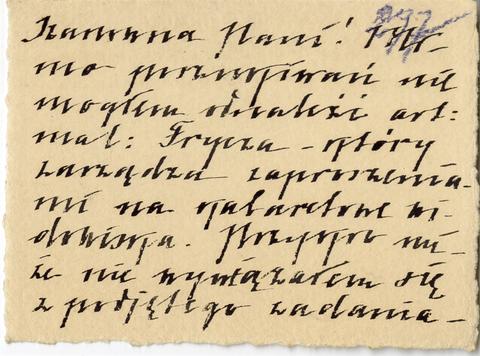 Szanowna Pani! Mi-
mo poszukiwań nie
mogłem odnaleźć art:
mal: Frycza - który
zarządza zaproszenia-
mi na kabaretowe wi-
dowiska. Przykro mi,
że nie wywiązałem się
z podjętego zadania -